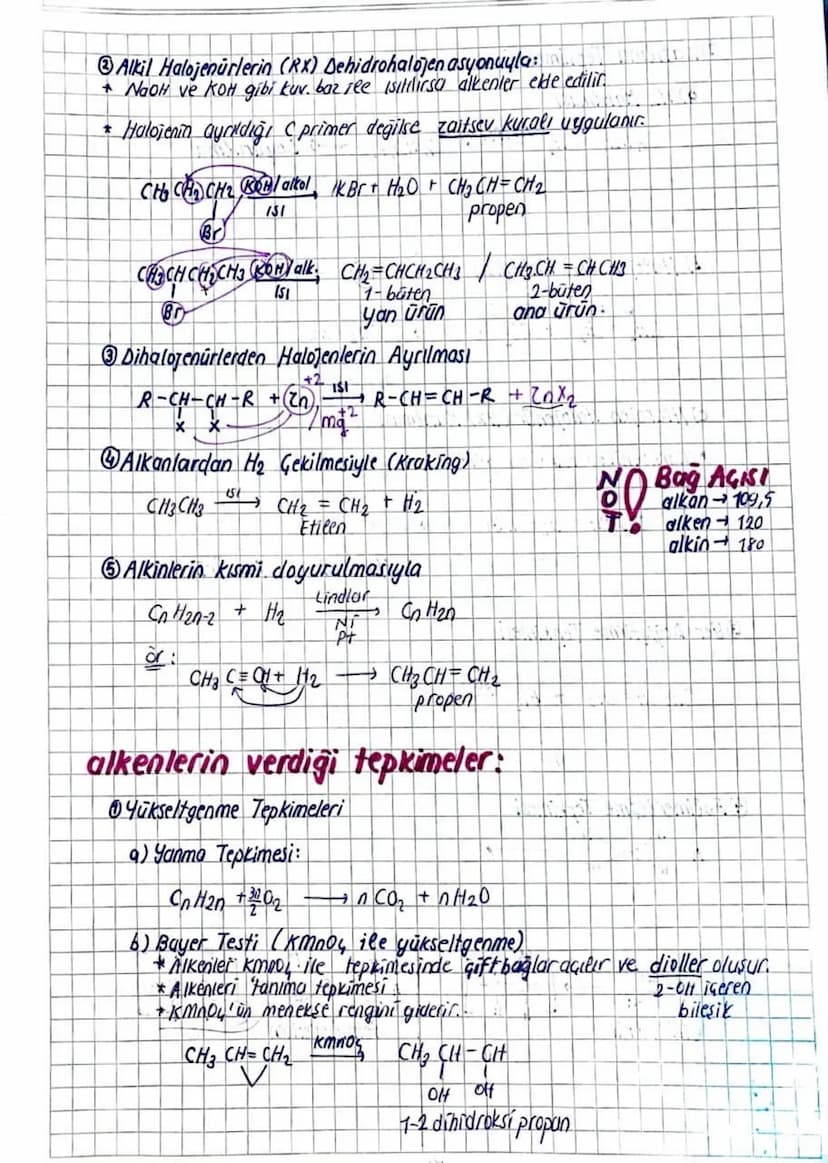 ② Alkil Halojenürlerin (RX) Dehidrohalojenasyonuyla:
* NaOH ve KOH gibi kuv. baz ile ısıtılırsa alkenler elde edilir.
* Halojenin ayrıldığı C primer değilse zaitsev kuralı uygulanır.
CH3 CH2 CH2 KOH/alkol KBr + H2O + CH3 CH=CH2
ısı
propen
Br
CH3CH CH2CH3 KOH/alk. CH2=CHCH2CH3 / CH3.CH=CHCH3
ısı
1-büten 2-büten
Br
yan ürün ana ürün.
③ Dihalojenürlerden Halojenlerin Ayrılması
+2 ısı
R-CH-CH-R + Zn → R-CH=CH-R + ZnX2
x x /mg+2
④ Alkanlardan H2 Çekilmesiyle (Kraking)
CH3CH3 ısı → CH2 = CH2 + H2
Etilen
NOT! Bağ Açısı
alkan → 109,5
alken → 120
alkin → 180
⑤ Alkinlerin kısmi doyurulmasıyla
CnH2n-2 + H2 Lindlar → CnH2n
Ni
Pt
ör:
CH3 C≡CH + H2 → CH3CH=CH2
propen
alkenlerin verdiği tepkimeler:
① Yükseltgenme Tepkimeleri
a) Yanma Tepkimesi:
CnH2n + 3n/2 O2 → nCO2 + nH2O
b) Bayer Testi (KMnO4 ile yükseltgenme)
* Alkenler KMnO4 ile tepkimesinde çift bağlar açılır ve dioller oluşur.
* Alkenleri tanıma tepkimesi
2-OH içeren
bileşik
* KMnO4'ün menekşe rengini giderir.
CH3 CH=CH2 KMnO4 CH3 CH-CH
OH OH
1-2 dihidroksi propan